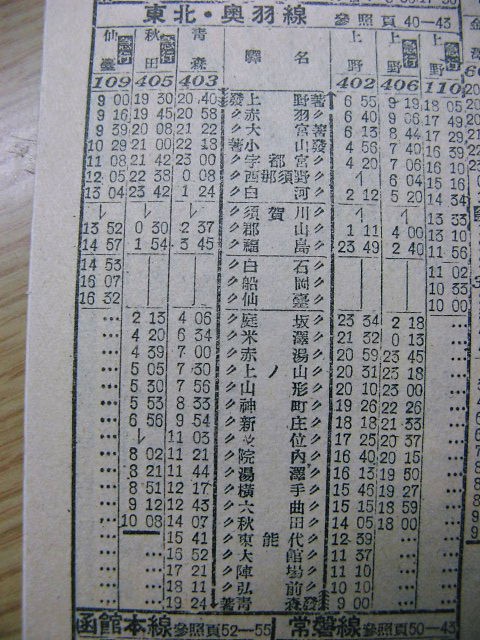 東北・奥羽線 參照頁40-43
仙臺 急行 秋田 青森 驛名 上野 上野 急行 上野
109 405 403 402 406 110
9 00 19 30 20 40 發上野著 6 55 9 19 18 05
9 16 19 45 20 58 〃赤羽〃 6 40 9 06 17 49
9 39 20 08 21 22 〃大宮著 6 13 8 44 17 29
10 29 21 00 22 18 著小山發 4 56 7 40 16 39
11 08 21 42 23 00 〃宇都宮〃 4 20 7 06 16 10
12 05 22 38 0 08 〃西那須野〃 6 04 15 16
13 04 23 42 1 24 〃白河〃 2 12 5 20 14 34
〃須賀川〃 13 33
13 52 0 30 2 37 〃郡山〃 1 11 4 00 13 10
14 57 1 54 3 45 〃福島〃 23 49 2 40 11 56
14 53 〃白石〃 11 02
16 07 〃船岡〃 10 33
16 32 〃仙臺〃 10 00
… 2 13 4 06 〃庭坂〃 23 34 2 18 …
… 4 20 6 34 〃米澤〃 21 32 0 13 …
… 4 39 7 00 〃赤湯〃 20 59 23 45 …
… 5 05 7 30 〃上ノ山〃 20 31 23 18 …
… 5 30 7 56 〃山形〃 20 10 23 00 …
… 5 53 8 33 〃神町〃 19 26 22 26 …
… 6 56 9 54 〃新庄〃 18 18 21 33 …
… 11 03 〃位〃 17 25 20 37 …
… 8 02 11 21 〃院內〃 16 40 20 15 …
… 8 21 11 44 〃湯澤〃 16 13 19 50 …
… 8 51 12 17 〃橫手〃 15 46 19 27 …
… 9 12 12 43 〃大曲〃 15 15 18 59 …
… 10 08 14 07 〃秋田〃 14 05 18 00 …
… 15 41 〃東能代〃 12 39 …
… 16 52 〃大館〃 11 37 …
… 17 21 〃陣場〃 11 10 …
… 18 11 〃弘前〃 10 10 …
… 19 24 著青森發 9 00 …
函館本線 參照頁52-55 常磐線 參照頁50-43